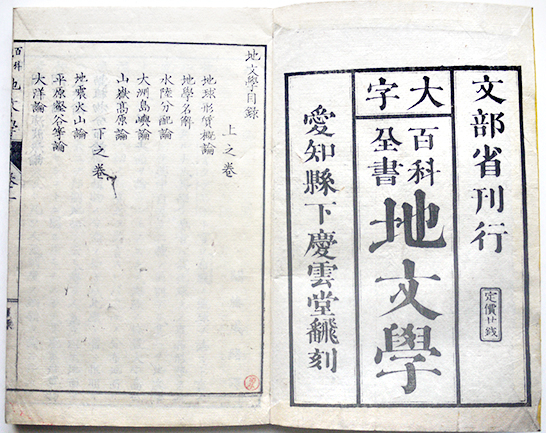 文部省刊行
定價廿錢
大字
百科全書
地文學
愛知縣下慶雲堂飜刻
地文學目錄
上之卷
地球形質概論
地學名稱
水陸分配論
大洲島嶼論
山嶽高原論
下之卷
地震火山論
平原谿谷等論
大洋論
百科
地文學